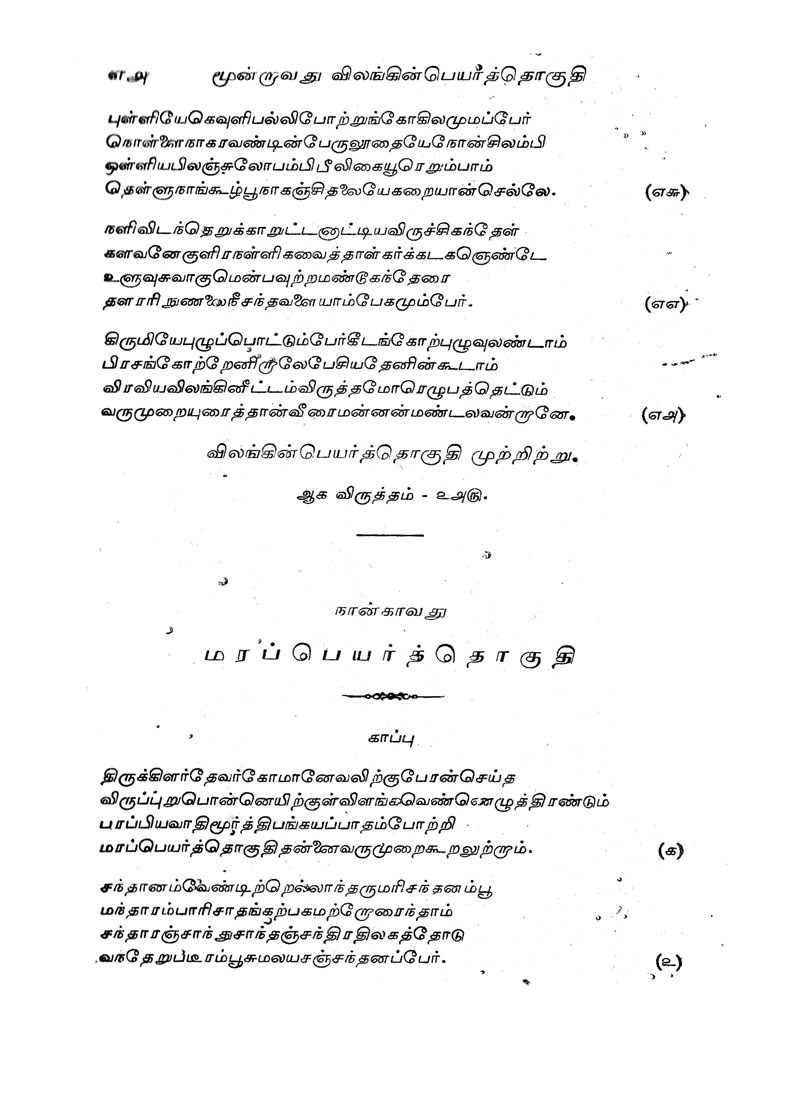 ௭.அ மூன்றாவது விலங்கின்பெயர்த்தொகுதி
புள்ளியேகெவுளிபல்லிபோற்றுங்கோகிலமுமப்பேர்
நொள்ளைநாகரவண்டின்பேருலூதையேநோன்சிலம்பி
ஒள்ளியபிலஞ்சுலோபம்பிபீலிகையூரெறும்பாம்
தெள்ளுநாங்கூழ்பூநாகஞ்சிதலையேகறையான்செல்லே. (எசு)
நளிவிடந்தெறுக்காறுட்டனாட்டியவிருச்சிகந்தேள்
களவனேகுளிரநள்ளிகவைத்தாள்கர்க்கடகஞெண்டே
உளுவுசுவாகுமென்பவுற்றமண்டூகந்தேரை
தளரரிநுணலைநீசந்தவளையாம்பேகமும்பேர். (எஎ)
கிருமியேபுழுப்பொட்டும்பேர்கீடங்கோற்புழுவுலண்டாம்
பிரசங்கோற்றேனீறாலேபேசியதேனின்கூடாம்
விரவியவிலங்கினீட்டம்விருத்தமோரெழுபத்தெட்டும்
வருமுறையுரைத்தான்வீரைமன்னன்மண்டலவன்றானே. (எஅ)
விலங்கின்பெயர்த்தொகுதி முற்றிற்று.
ஆக விருத்தம் - உஅரு.
நான்காவது
மரப்பெயர்த்தொகுதி
காப்பு
திருக்கிளர்தேவர்கோமானேவலிற்குபேரன்செய்த
விருப்புறுபொன்னெயிற்குள்விளங்கவெண்ணெழுத்திரண்டும்
பரப்பியவாதிமூர்த்திபங்கயப்பாதம்போற்றி
மரப்பெயர்த்தொகுதிதன்னைவருமுறைகூறலுற்றாம். (க)
சந்தானம்வேண்டிற்றெல்லாந்தருமரிசந்தனம்பூ
மந்தாரம்பாரிசாதங்கற்பகமற்றோரைந்தாம்
சந்தாரஞ்சாந்துசாந்தஞ்சந்திரதிலகத்தோடு
வந்தேறுபடீரம்பூசுமலயசஞ்சந்தனப்பேர். (உ)